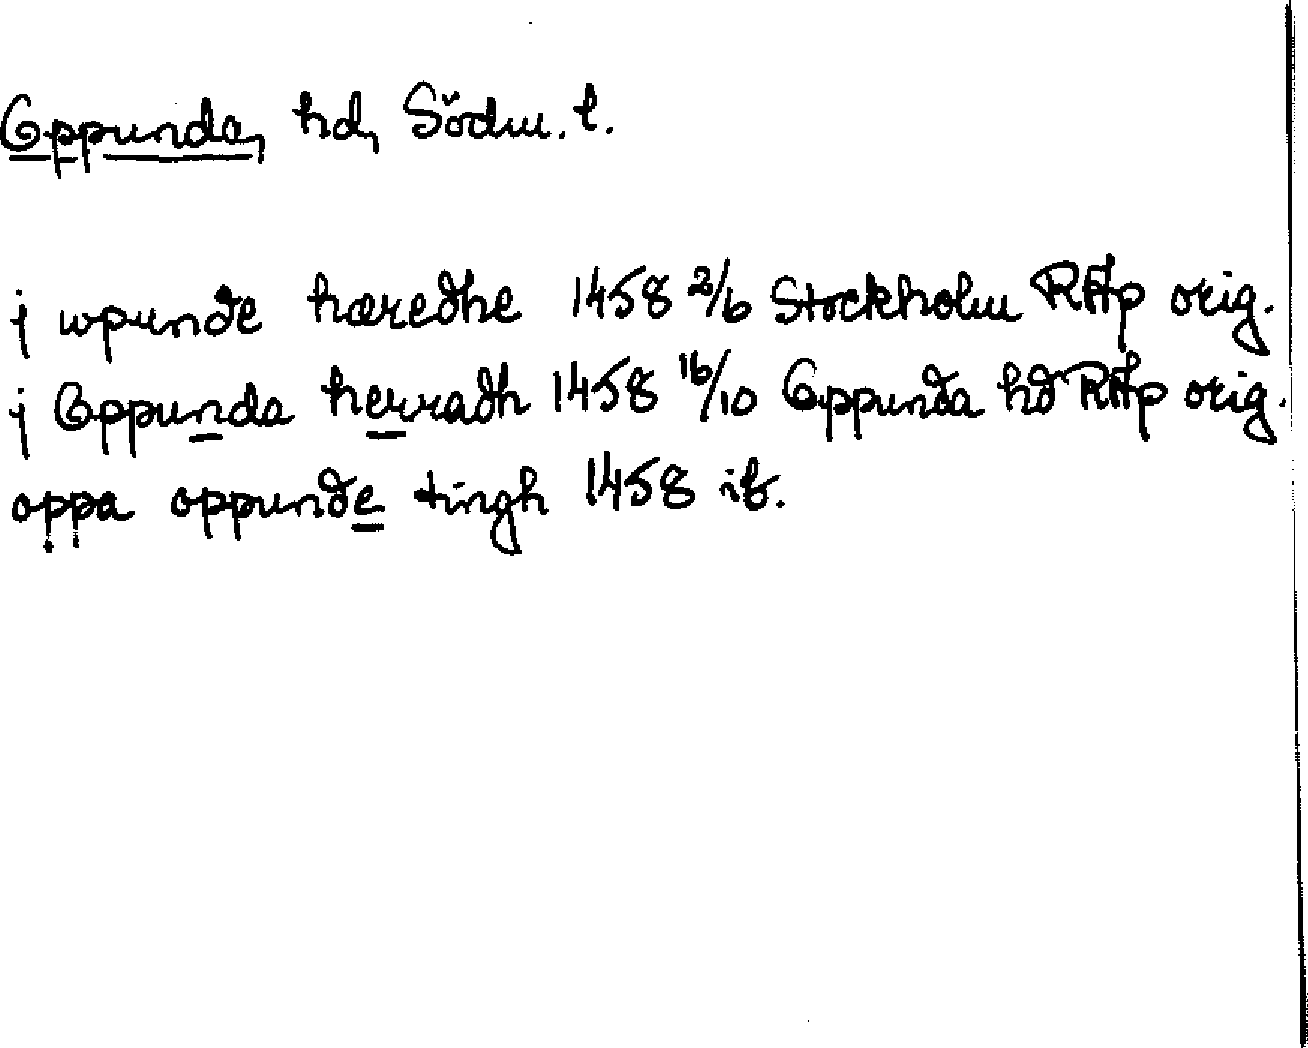 Oppunda, hd, Södm. l.
j wpunde hæredhe 1458 2/6 Stockholm RAp orig.
j Oppunda herradh 1458 16/10 Oppunda hd RAp orig.
oppa oppunde tingh 1458 ib.